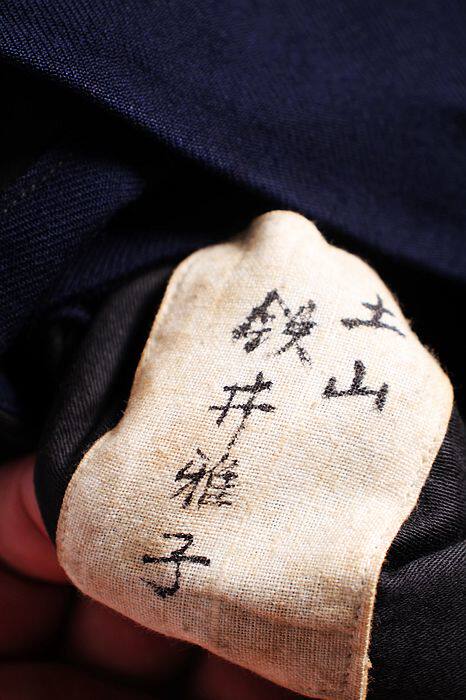 土山
鉄井雅子